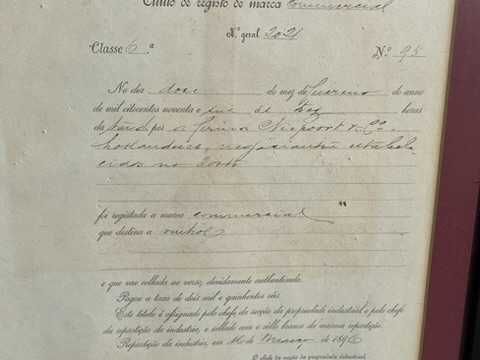 Titulo de registo de marca Commercial
N.º geral 2021
Classe 6.ª N.º 95
No dia doze do mez de Fevereiro do anno
de mil oitocentos noventa e horas
da tarde por a firma Niepoort & C.ª
hollandeses, negociantes estabele-
cidos no Porto
foi registada a marca commercial "
que destina a vinhos
e que vae collada no verso, devidamente authenticada.
Pagou a taxa de dois mil e quinhentos réis.
Este titulo é assignado pelo chefe da secção da propriedade industrial e pelo chefe
da repartição da industria, e sellado com o sêllo branco da mesma repartição.
Repartição da industria, em de Março de 1896
O chefe da secção da propriedade industrial,